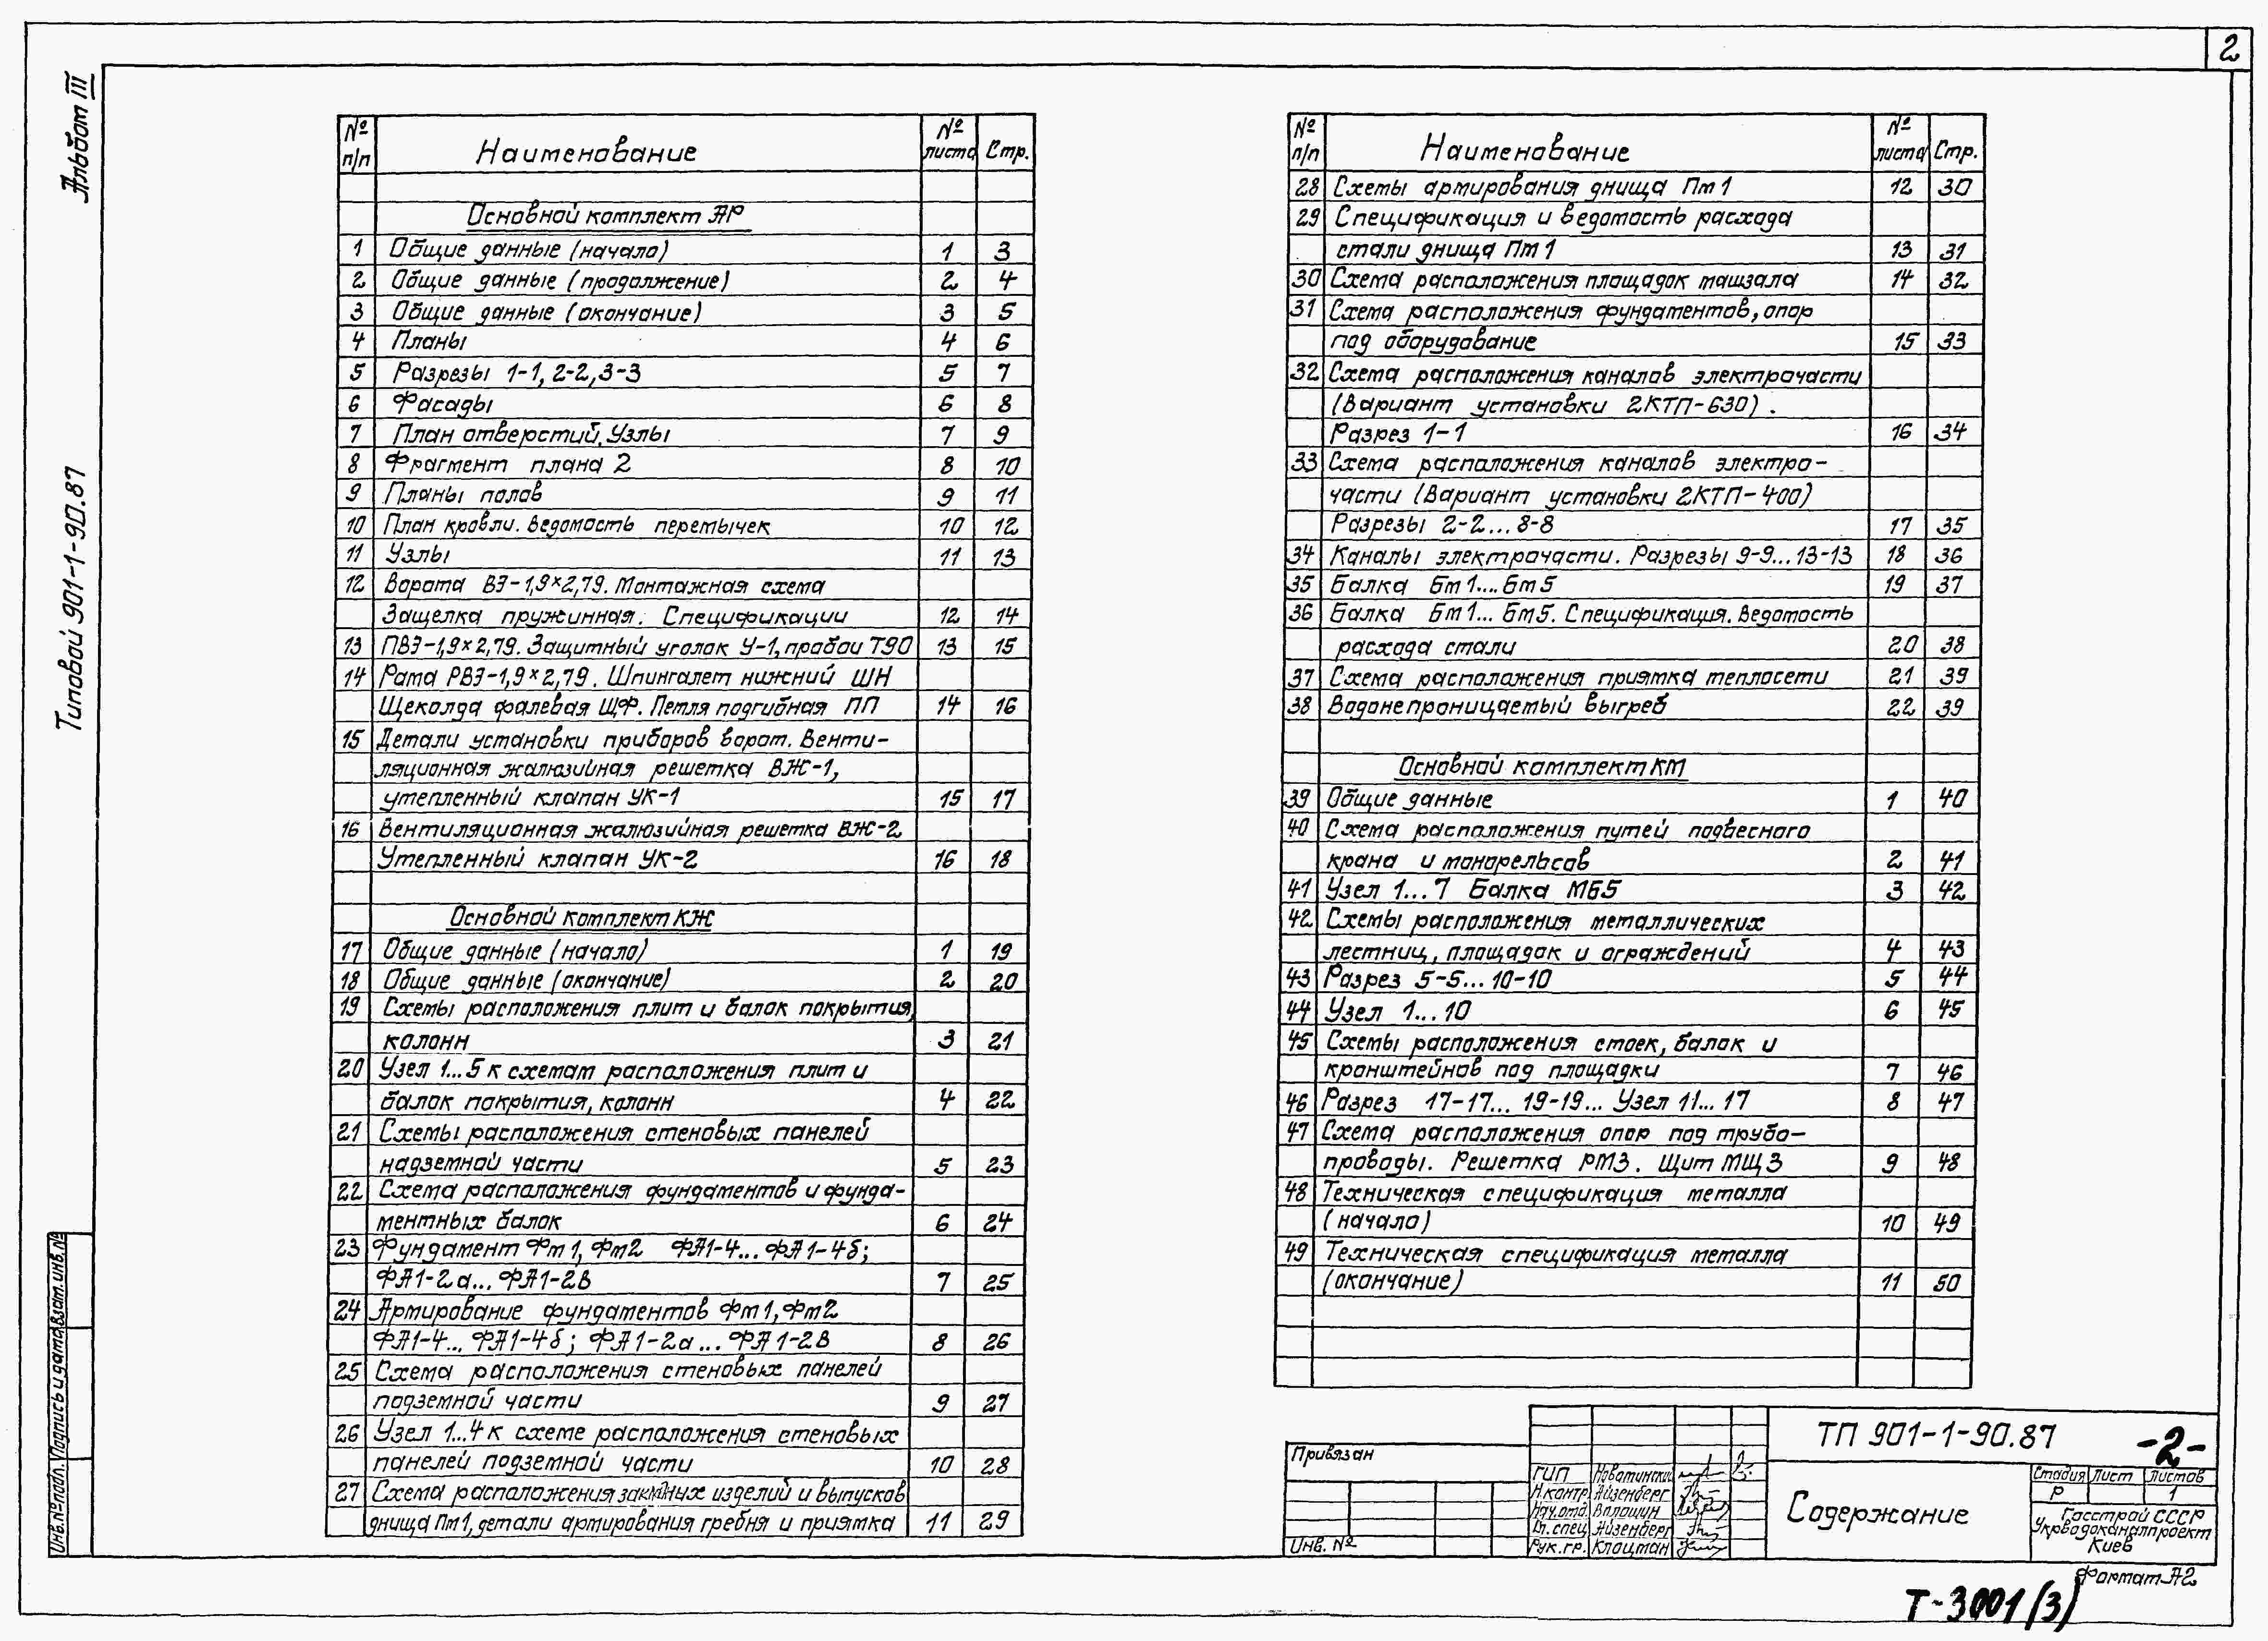 2
Альбом III
Типовой 901-1-90.87
Инв.№ подл. Подпись и дата Взам.инв.№
№ п/п Наименование № листа Стр.
Основной комплект АР
1 Общие данные (начало) 1 3
2 Общие данные (продолжение) 2 4
3 Общие данные (окончание) 3 5
4 Планы 4 6
5 Разрезы 1-1, 2-2, 3-3 5 7
6 Фасады 6 8
7 План отверстий. Узлы 7 9
8 Фрагмент плана 2 8 10
9 Планы полов 9 11
10 План кровли. Ведомость перемычек 10 12
11 Узлы 11 13
12 Ворота ВЭ-1,9×2,79. Монтажная схема
Защелка пружинная. Спецификации 12 14
13 ПВЭ-1,9×2,79. Защитный уголок У-1, пробои Т90 13 15
14 Рама РВЭ-1,9×2,79. Шпингалет нижний ШН
Щеколда фалевая ЩФ. Петля подгибная ПП 14 16
15 Детали установки приборов ворот. Венти-
ляционная жалюзийная решетка ВЖ-1,
утепленный клапан УК-1 15 17
16 Вентиляционная жалюзийная решетка ВЖ-2
Утепленный клапан УК-2 16 18
Основной комплект КЖ
17 Общие данные (начало) 1 19
18 Общие данные (окончание) 2 20
19 Схемы расположения плит и балок покрытия,
колонн 3 21
20 Узел 1...5 к схемам расположения плит и
балок покрытия, колонн 4 22
21 Схемы расположения стеновых панелей
надземной части 5 23
22 Схема расположения фундаментов и фунда-
ментных балок 6 24
23 Фундамент Фм1, Фм2 ФА1-4... ФА1-4б;
ФА1-2а... ФА1-2в 7 25
24 Армирование фундаментов Фм1, Фм2
ФА1-4... ФА1-4б; ФА1-2а... ФА1-2в 8 26
25 Схема расположения стеновых панелей
подземной части 9 27
26 Узел 1...4 к схеме расположения стеновых
панелей подземной части 10 28
27 Схема расположения закладных изделий и выпусков
днища Пм1, детали армирования гребня и приямка 11 29
№ п/п Наименование № листа Стр.
28 Схемы армирования днища Пм1 12 30
29 Спецификация и ведомость расхода
стали днища Пм1 13 31
30 Схема расположения площадок машзала 14 32
31 Схема расположения фундаментов, опор
под оборудование 15 33
32 Схема расположения каналов электрочасти
(Вариант установки 2КТП-630).
Разрез 1-1 16 34
33 Схема расположения каналов электро-
части (Вариант установки 2КТП-400)
Разрезы 2-2...8-8 17 35
34 Каналы электрочасти. Разрезы 9-9...13-13 18 36
35 Балка Бм1....Бм5 19 37
36 Балка Бм1... Бм5. Спецификация. Ведомость
расхода стали 20 38
37 Схема расположения приямка теплосети 21 39
38 Водонепроницаемый выгреб 22 39
Основной комплект КМ
39 Общие данные 1 40
40 Схема расположения путей подвесного
крана и монорельсов 2 41
41 Узел 1...7 Балка МБ5 3 42
42 Схемы расположения металлических
лестниц, площадок и ограждений 4 43
43 Разрез 5-5...10-10 5 44
44 Узел 1...10 6 45
45 Схемы расположения стоек, балок и
кронштейнов под площадки 7 46
46 Разрез 17-17... 19-19... Узел 11...17 8 47
47 Схема расположения опор под трубо-
проводы. Решетка РМ3. Щит МЩ3 9 48
48 Техническая спецификация металла
(начало) 10 49
49 Техническая спецификация металла
(окончание) 11 50
Привязан
Инв. №
ГИП Новатинский
Н.контр. Айзенберг
Нач.отд. Волошин
Гл.спец. Айзенберг
Рук.гр. Клоцман
ТП 901-1-90.87 -2-
Содержание
Стадия Лист Листов
Р 1
Госстрой СССР
Укрводоканалпроект
Киев
Формат А2
Т-3001(3)